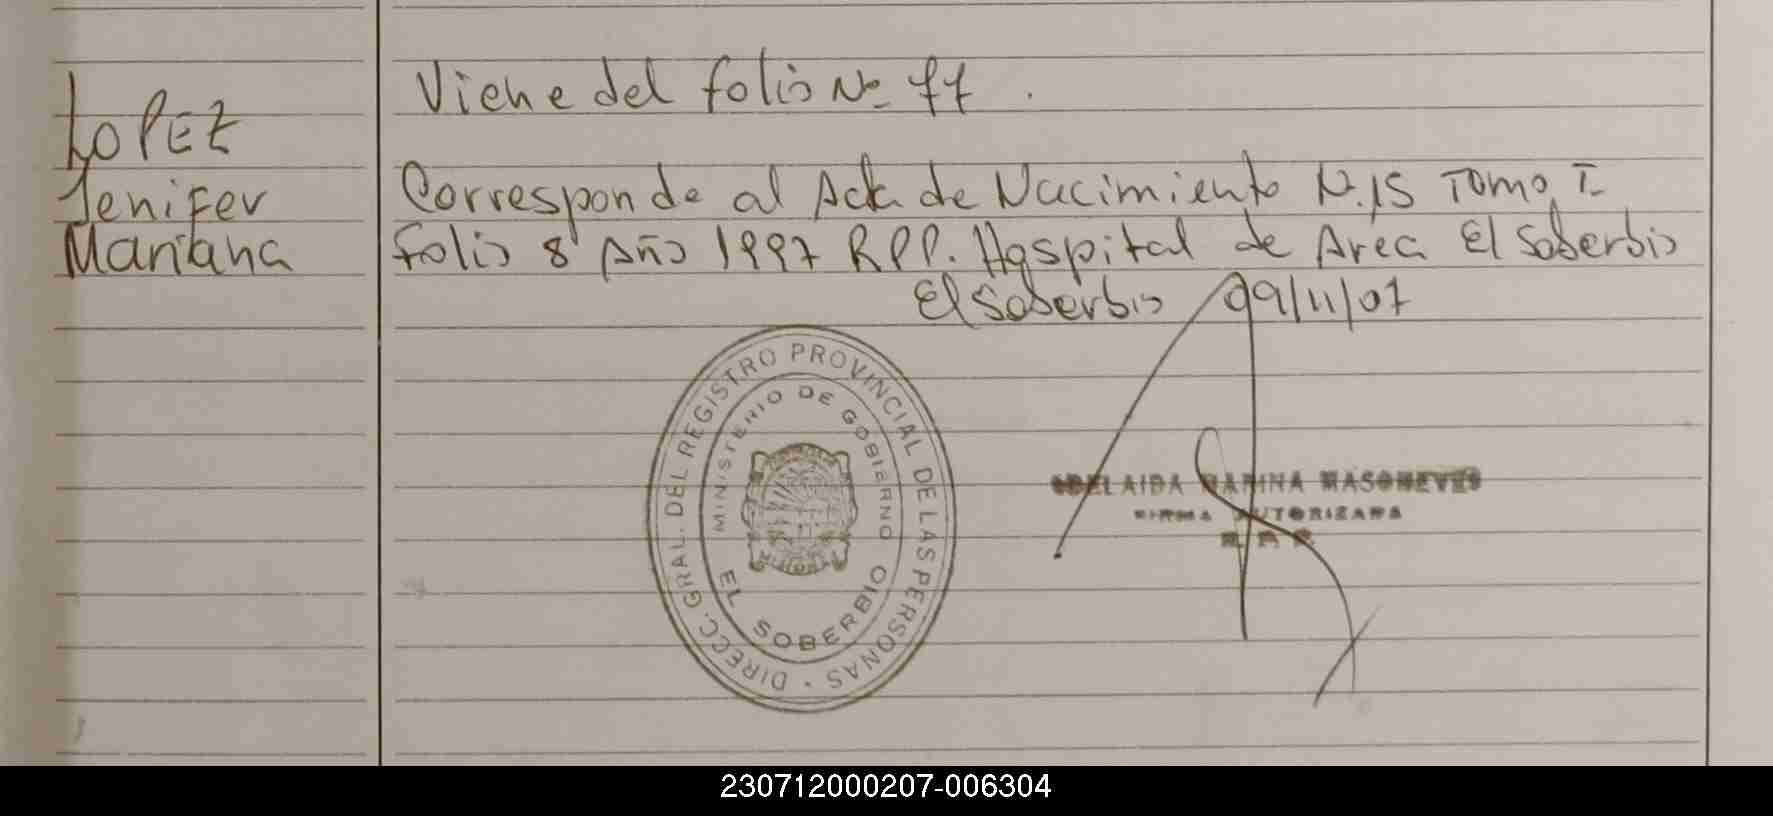 LOPEZ
Jenifer
Mariana
Viene del folio No 77.
Corresponde al Acta de Nacimiento N.15 Tomo I-
folio 8 Año 1997 RPP. Hospital de Area El Soberbio
El Soberbio 09/11/07
DIRECC. GRAL. DEL REGISTRO PROVINCIAL DE LAS PERSONAS
MINISTERIO DE GOBIERNO
EL SOBERBIO
MARINA
FIRMA AUTORIZADA
230712000207-006304